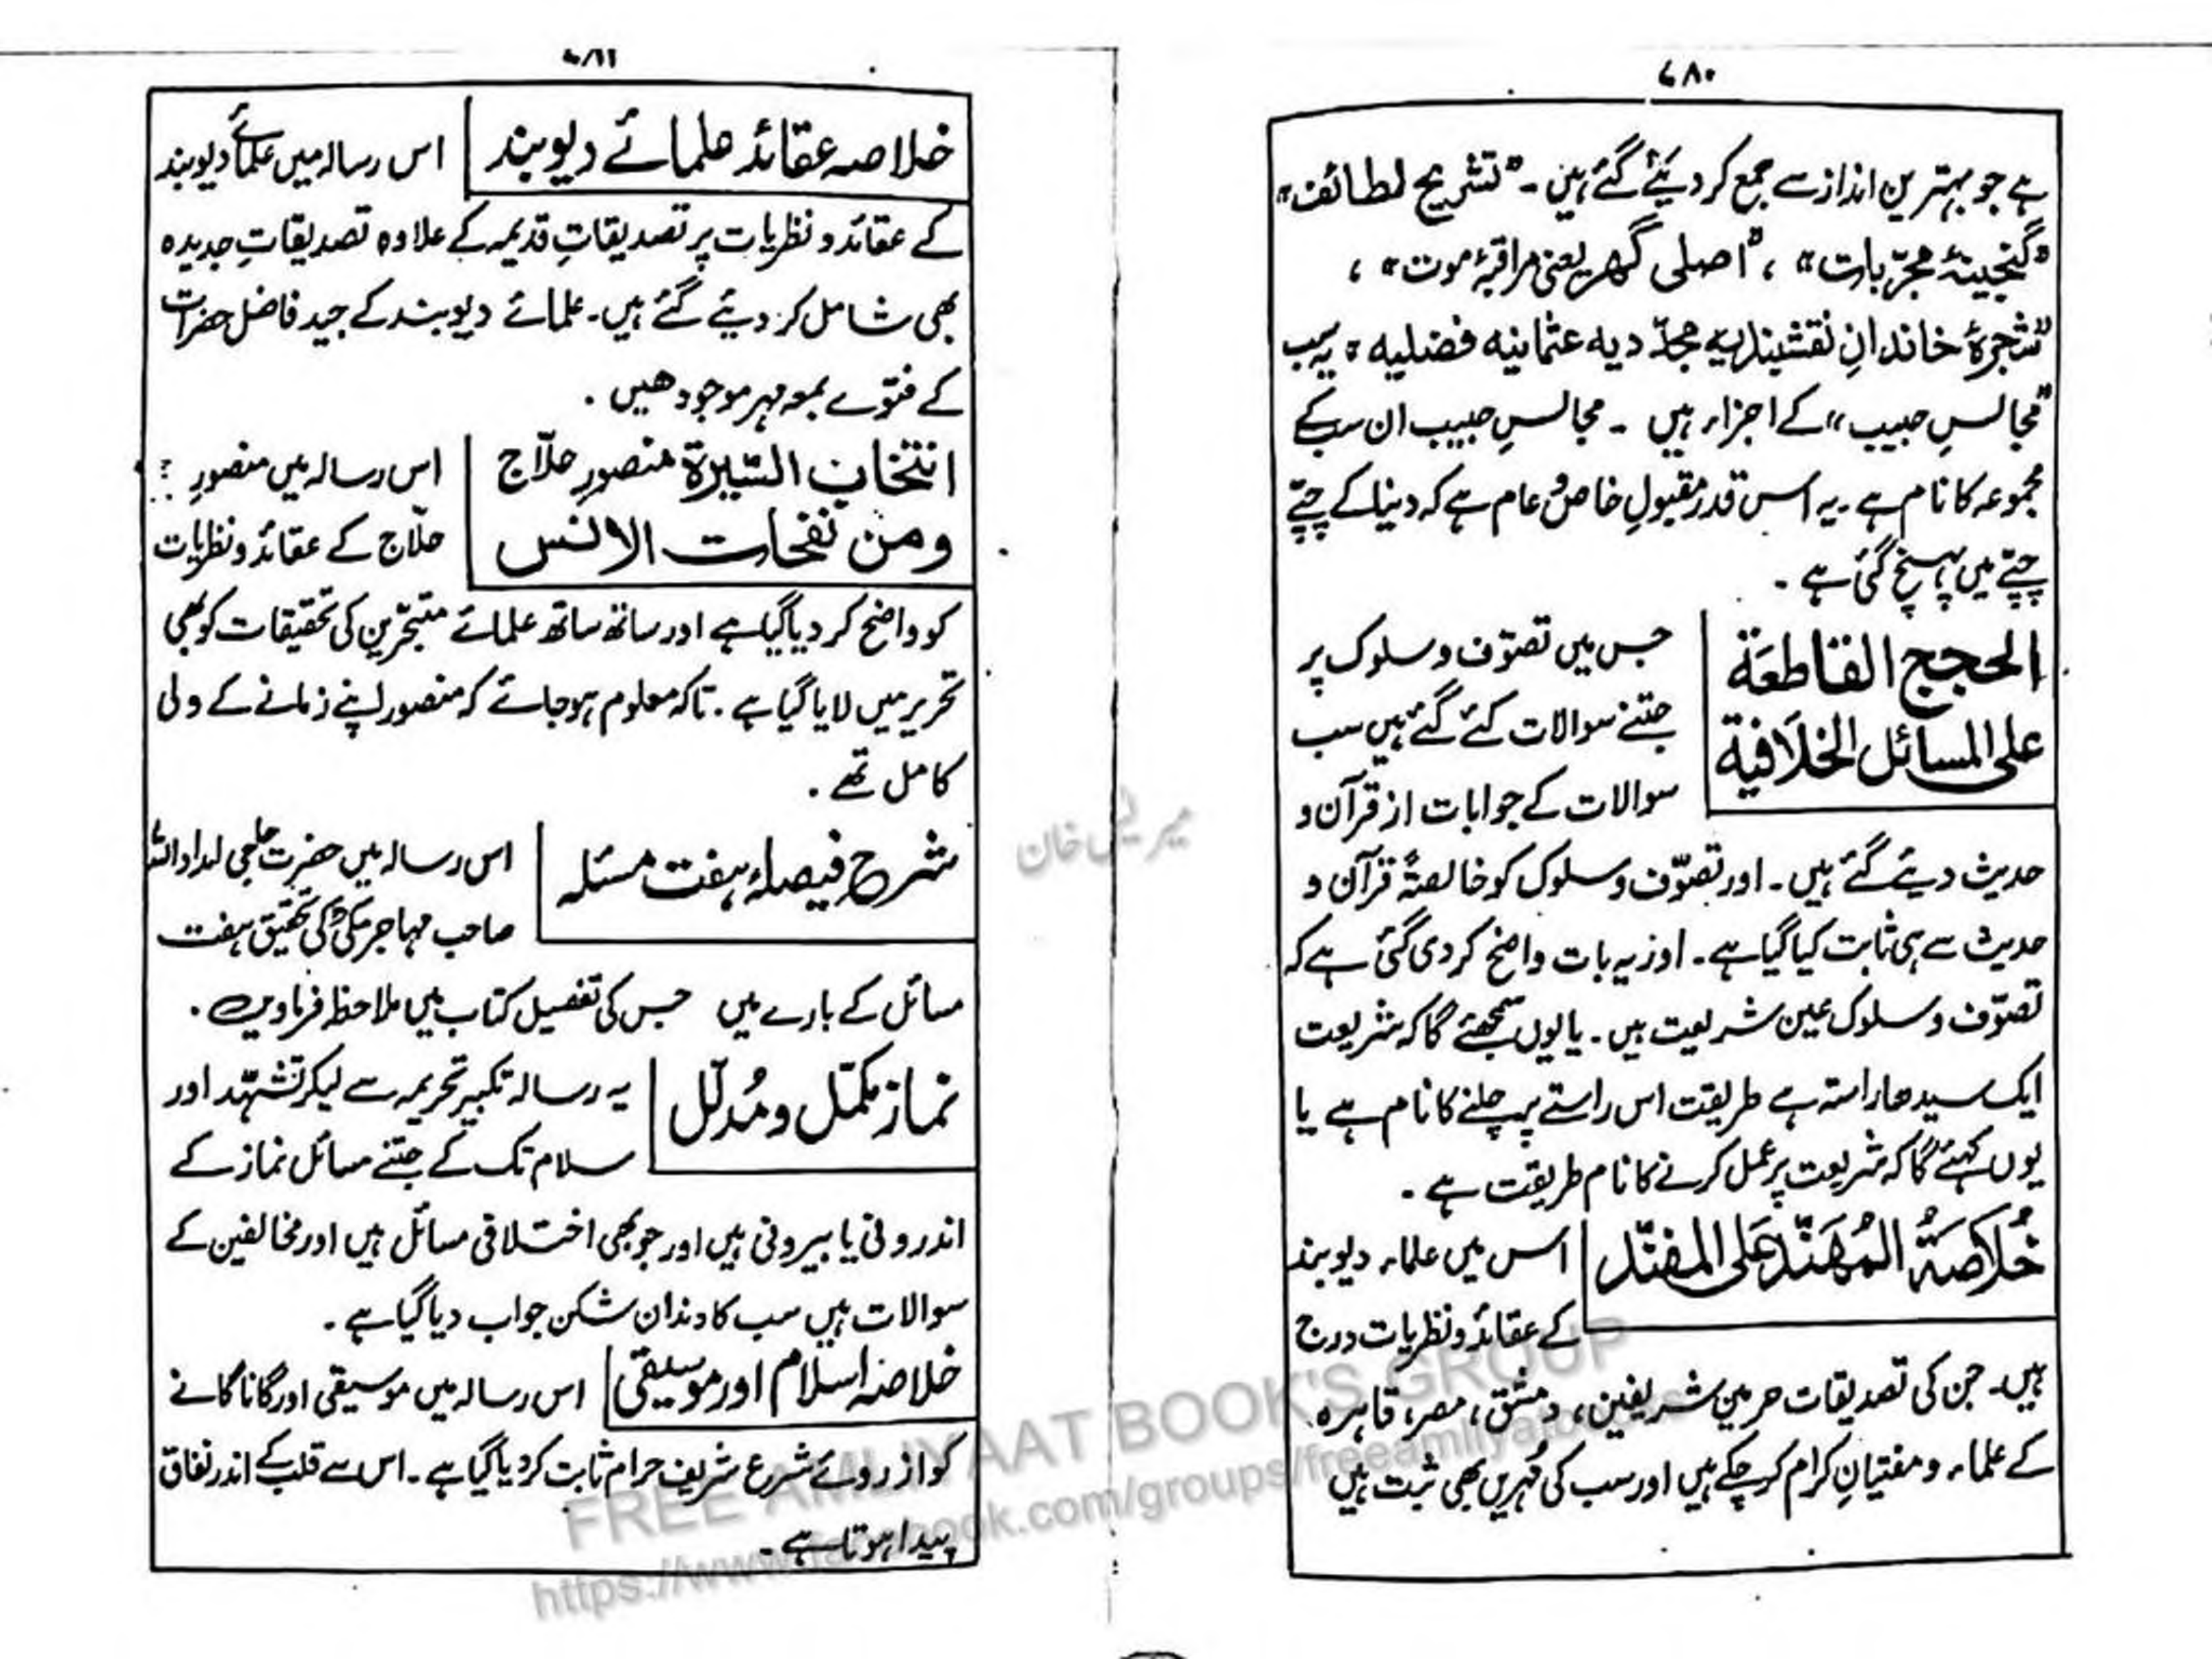 ۷۸۰
ہے جو بہترین انداز سے جمع کر دیئے گئے ہیں۔ "تشریح لطائف"
"گنجینۂ مجرّبات"، "اصلی گھر یعنی مراقبۂ موت"،
"شجرۂ خاندانِ نقشبندیہ مجدّدیہ عثمانیہ فضلیہ" یہ سب
"مجالسِ حبیب" کے اجزاء ہیں ۔ مجالسِ حبیب ان سب کے
مجموعہ کا نام ہے ۔ یہ اس قدر مقبولِ خاص و عام ہے کہ دنیا کے چپّے
چپّے میں پہنچ گئی ہے ۔
الحجج القاطعَة
علی المسائل الخلَافیة
جس میں تصوّف و سلوک پر
جتنے سوالات کئے گئے ہیں سب
سوالات کے جوابات از قرآن و
حدیث دیئے گئے ہیں ۔ اور تصوّف و سلوک کو خالصةً قرآن و
حدیث سے ہی ثابت کیا گیا ہے ۔ اور یہ بات واضح کر دی گئی ہے کہ
تصوّف و سلوک عین شریعت ہیں ۔ یا یوں سمجھئے گا کہ شریعت
ایک سیدھا راستہ ہے طریقت اس راستے پہ چلنے کا نام ہے یا
یوں کہئے گا کہ شریعت پر عمل کرنے کا نام طریقت ہے ۔
خُلاَصَۃُ المُهَنّد عَلی المفنّد
اس میں علماء دیوبند
کے عقائد و نظریات درج
ہیں۔ جن کی تصدیقات حرمین شریفین، دمشق، مصر، قاہرہ
کے علماء و مفتیانِ کرام کر چکے ہیں اور سب کی مُہریں بھی ثبت ہیں
خلاصہ عقائد علمائے دیوبند
اس رسالہ میں علمائے دیوبند
کے عقائد و نظریات پر تصدیقاتِ قدیمہ کے علاوہ تصدیقاتِ جدیدہ
بھی شامل کر دیئے گئے ہیں۔ علمائے دیوبند کے جید فاضل حضرات
کے فتوے بمعہ مہر موجود ھیں ۔
انتخاب السّیرة منصورِ حلّاج
ومن نفحات الانس
اس رسالہ میں منصورِ
حلّاج کے عقائد و نظریات
کو واضح کر دیا گیا ہے اور ساتھ ساتھ علمائے متبحّرین کی تحقیقات کو بھی
تحریر میں لایا گیا ہے ۔ تاکہ معلوم ہو جائے کہ منصور اپنے زمانے کے ولی
کامل تھے ۔
شرح فیصلۂ ہفت مسئلہ
اس رسالہ میں حضرت حاجی امداد اللہ
صاحب مہاجر مکیؒ کی تحقیق ہفت
مسائل کے بارے میں جس کی تفصیل کتاب میں ملاحظہ فرماویں ۔
نماز مکمّل و مُدلّل
یہ رسالہ تکبیر تحریمہ سے لیکر تشہّد اور
سلام تک کے جتنے مسائل نماز کے
اندرونی یا بیرونی ہیں اور جو بھی اختلافی مسائل ہیں اور مخالفین کے
سوالات ہیں سب کا دندان شکن جواب دیا گیا ہے ۔
خلاصہ اسلام اور موسیقی
اس رسالہ میں موسیقی اور گانا گانے
کو از روئے شرع شریف حرام ثابت کر دیا گیا ہے ۔ اس سے قلب کے اندر نفاق
پیدا ہوتا ہے ۔
FREE AMLIYAAT BOOK'S GROUP
https://www.facebook.com/groups/freeamliyatbooks